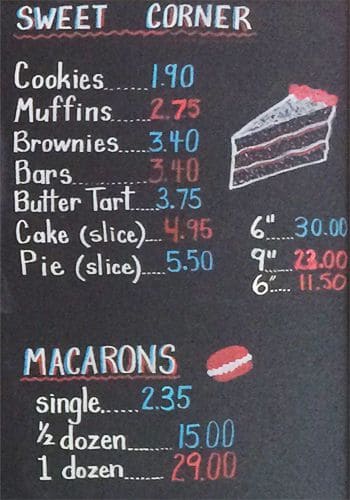 SWEET CORNER
Cookies......1.90
Muffins......2.75
Brownies.....3.40
Bars..........3.40
Butter Tart....3.75
Cake (slice)....4.95 6".....30.00
Pie (slice).....5.50 9".....23.00
6".....11.50
MACARONS
single......2.35
½ dozen.......15.00
1 dozen......29.00